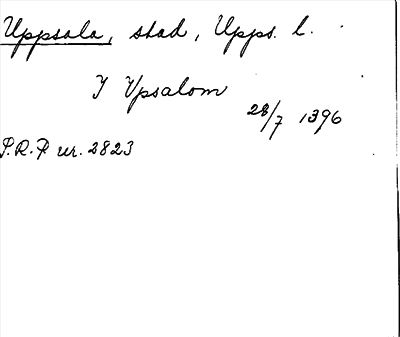 Uppsala, stad, Upps. l.
I Vpsalom
28/7 1396
S.R.P. nr. 2823